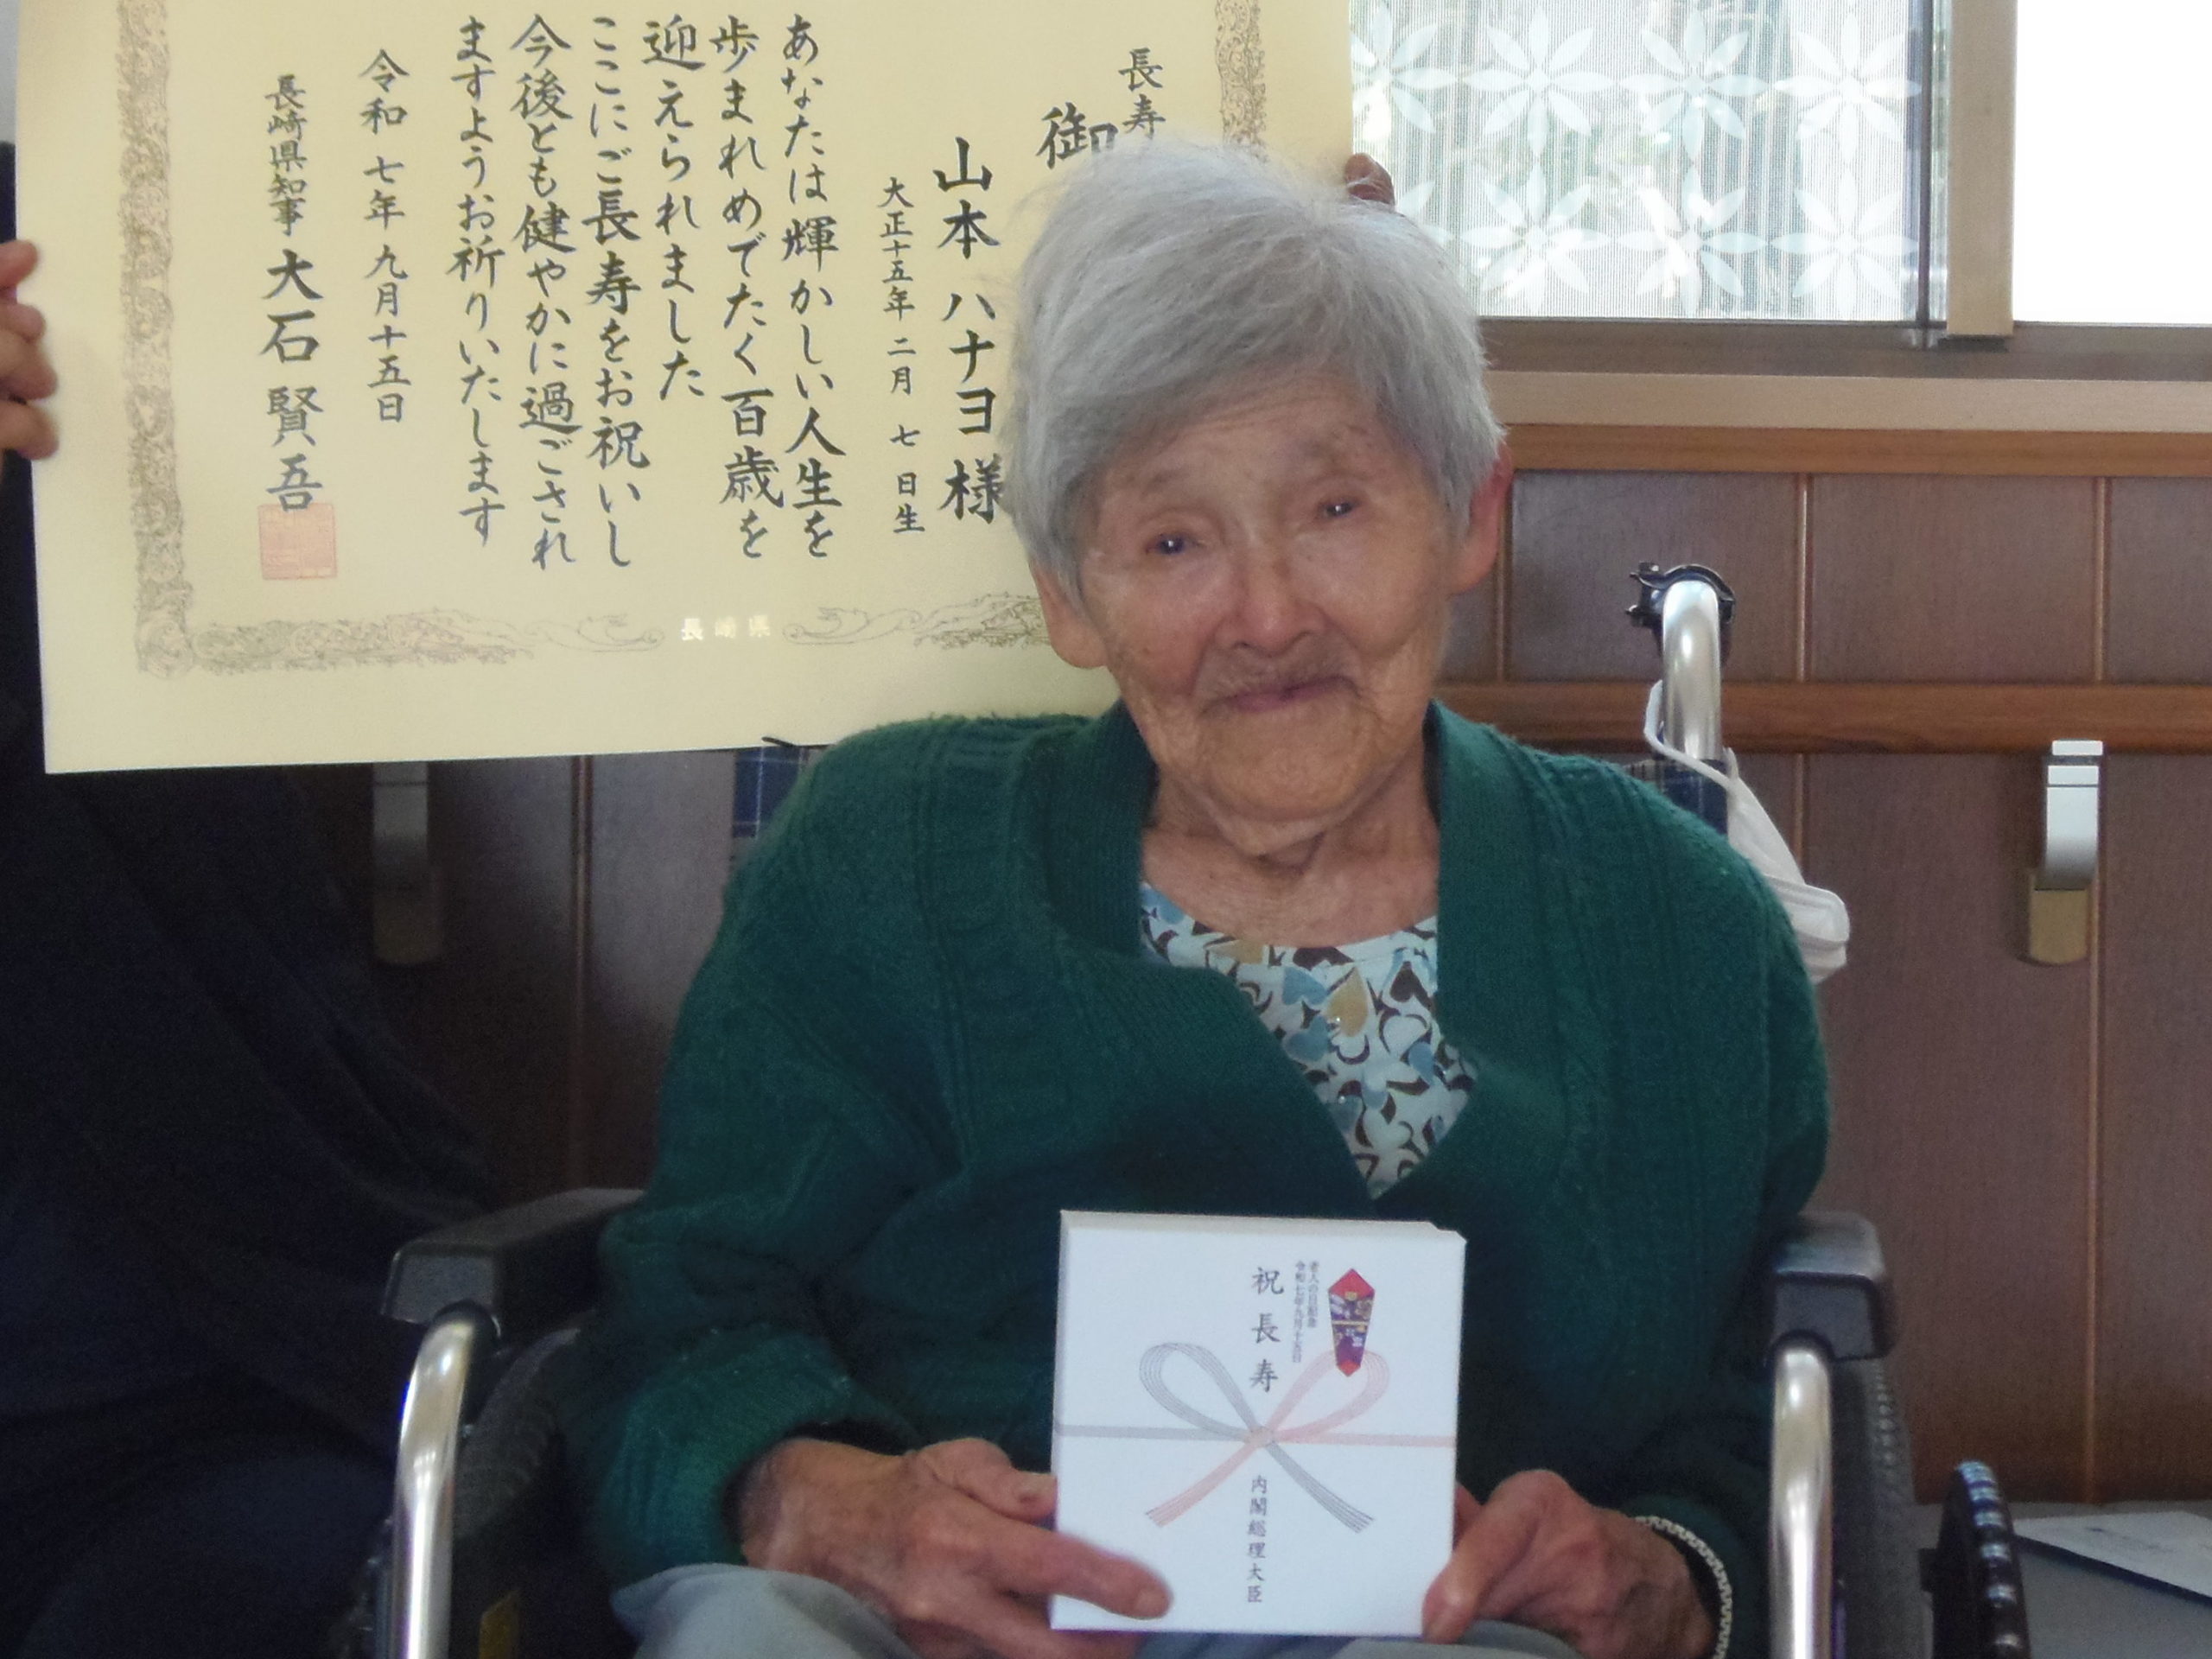 長寿
御
山本ハナヨ様
大正十五年二月七日生
あなたは輝かしい人生を
歩まれめでたく百歳を
迎えられました
ここにご長寿をお祝いし
今後とも健やかに過ごされ
ますようお祈りいたします
令和七年九月十五日
長崎県知事 大石賢吾
長崎県
老人の日記念
令和七年九月十五日
祝長寿
内閣総理大臣